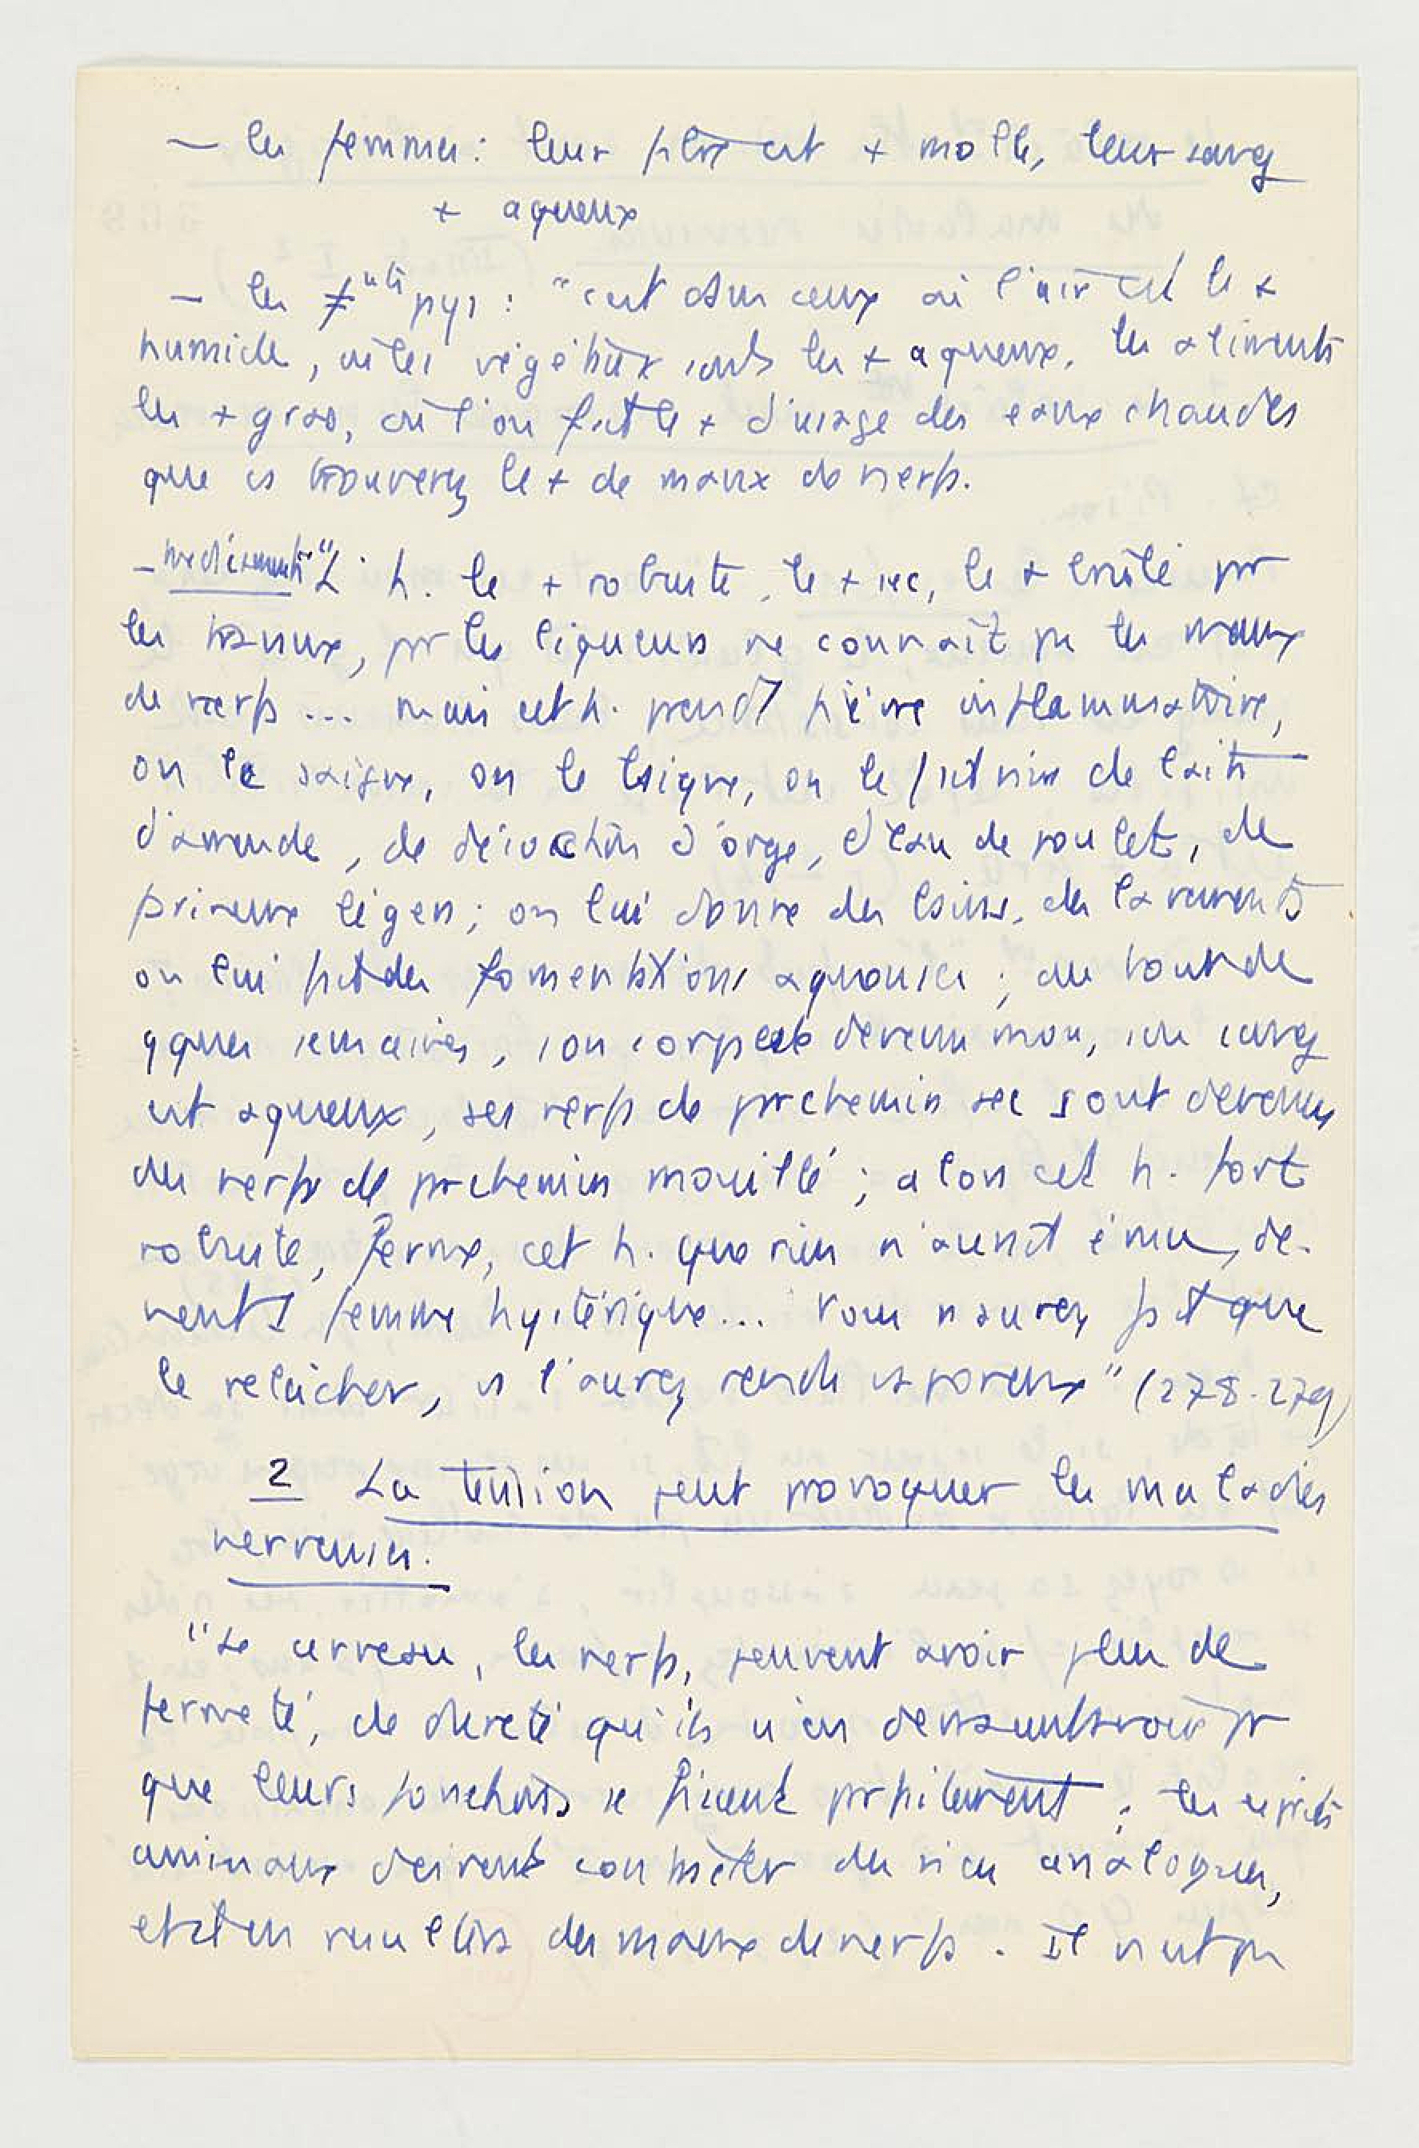 — les femmes : leur fibre est + molle, leur sang
+ aqueux
— les ≠ents pays : "c'est dans ceux où l'air est le +
humide, où les végétaux sont les + aqueux, les aliments
les + gras, où l'on fait le + d'usage des eaux chaudes
que vs trouverez le + de maux de nerfs.
— médicaments "L'h. le + robuste, le + sec, le + brûlé par
les travaux, par les liqueurs ne connaît pas les maux
de nerfs ... mais cet h. prend 1 fièvre inflammatoire,
on le saigne, on le baigne, on le fait vivre de laits
d'amande, de décoction d'orge, d'eau de poulet, de
bains, des lavements
on lui fait des fomentations aqueuses ; au bout de
qques semaines, son corps est devenu mou, son sang
est aqueux, ses nerfs de parchemin sec sont devenus
des nerfs de parchemin mouillé ; alors cet h. fort
robuste, ferme, cet h. que rien n'aurait ému, de-
vient 1 femme hystérique... Vous n'aurez fait que
le relâcher, vs l'aurez rendu vaporeux" (278-279)
2 La tension peut provoquer les maladies
nerveuses.
"Le cerveau, les nerfs, peuvent avoir plus de
fermeté, de dureté qu'ils n'en devraient avoir pr
que leurs fonctions se fissent parfaitement ; les esprits
animaux doivent contracter des vices analogues,
et de là des maux de nerfs. Il n'est pas